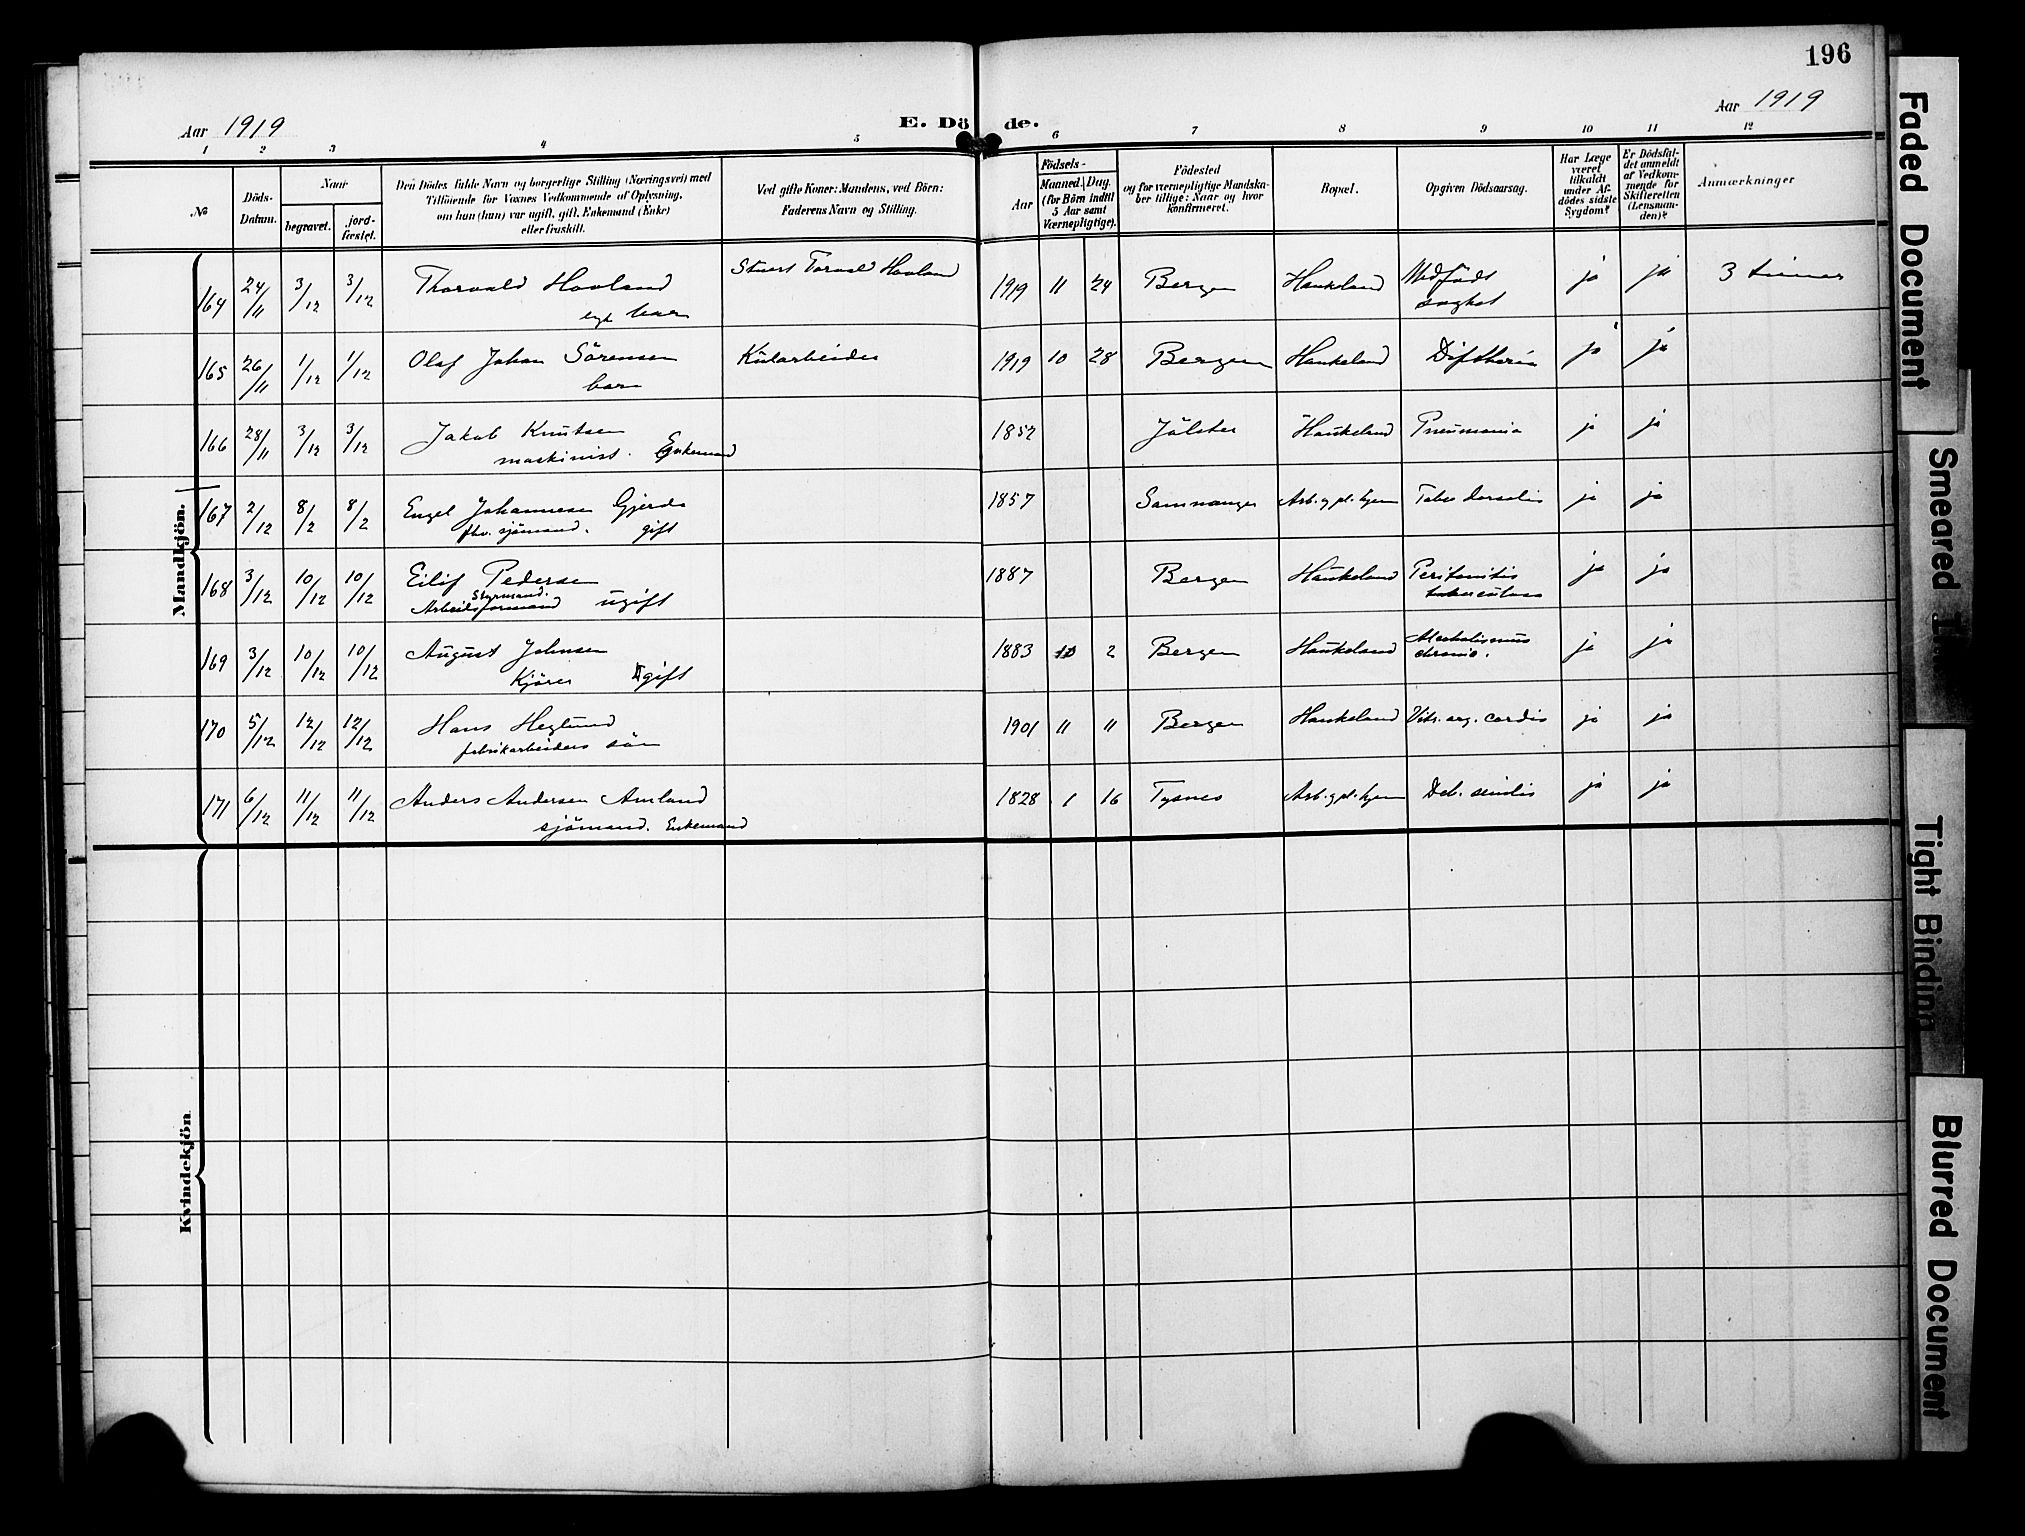 196
Aar 1919
E. Döde.
Aar 1919
1 2 3 4 5 6 7 8 9 10 11 12
№
Döds-
Datum.
Naar
begravet.
jord-
fæstet.
Den Dödes fulde Navn og borgerlige Stilling (Næringsvei) med
Tilföiende for Voxnes Vedkommende af Oplysning,
om han (hun) var ugift, gift, Enkemand (Enke)
eller fraskilt.
Ved gifte Koner: Mandens, ved Börn:
Faderens Navn og Stilling.
Födsels-
Aar
Maaned. Dag.
(for Börn indtil
5 Aar samt
Værnepligtige).
Födested
og for værnepligtige Mandska-
ber tillige: Naar og hvor
konfirmeret.
Bopæl.
Opgiven Dödsaarsag.
Har Læge
været
tilkaldt
under Af-
dödes sidste
Sygdom?
Er Dödsfal-
det anmeldt
af Vedkom-
mende for
Skifteretten
(Lensman-
den)?
Anmærkninger
Mandkjön.
164 24/11 3/12 3/12 Thorvald Hovland Stuert Torvald Hovland 1919 11 24 Bergen Haukeland Medfödt ja ja 3 timer
barn svaghet
165 26/11 1/12 1/12 Olaf Johan Sörensen Kularbeider 1919 10 28 Bergen Haukeland Diftheri ja ja
barn
166 28/11 3/12 3/12 Jakob Knutsen 1852 Jölster Haukeland Pneumonia ja ja
maskinist. Enkemand
167 2/12 8/2 8/2 Engel Johannesen Gjerde 1857 Samnanger Arb. g pl. hjem Tabes dorsalis ja ja
fhv. sjömand. gift
168 3/12 10/12 10/12 Eilif Pedersen 1887 Bergen Haukeland Peritonitis ja ja
Styrmand.
Arbeidsformand ugift tuberculosa
169 3/12 10/12 10/12 August Johnsen 1883 2 Bergen Haukeland Alcoholismus ja ja
Kjörer gift chronic.
170 5/12 12/12 12/12 Hans Heglund 1901 11 11 Bergen Haukeland Vit. org. cordis ja ja
fabrikarbeiders sön
171 6/12 11/12 11/12 Anders Andersen Amland 1828 1 16 Tysnes Arb. g pl. hjem Deb. senilis ja ja
sjömand. Enkemand
Kvindekjön
Faded Document
Smeared
Tight Binding
Blurred Document